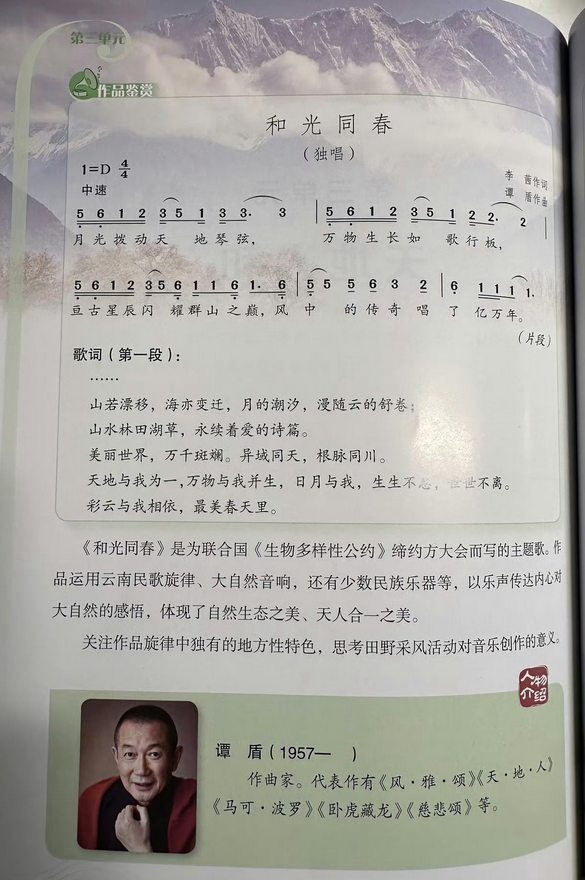 第三单元
作品鉴赏
和光同春
（独唱）
1=D 4/4
中速
李 茜作词
谭 盾作曲
5 6 1 2 3 5 1 3 3· 3 | 5 6 1 2 3 5 1 2 2· 2 |
月光拨动天 地琴弦， 万物生长如 歌行板，
5 6 1 2 3 5 6 1 6 1 6 1· 6 | 5 5 5 6 3 2 | 6 1 1 1 1·
亘古星辰闪 耀群山之巅，风 中 的传奇唱 了 亿万年。
（片段）
歌词（第一段）：
……
山若漂移，海亦变迁，月的潮汐，漫随云的舒卷；
山水林田湖草，永续着爱的诗篇。
美丽世界，万千斑斓。异域同天，根脉同川。
天地与我为一，万物与我并生，日月与我，生生不 世不离。
彩云与我相依，最美春天里。
《和光同春》是为联合国《生物多样性公约》缔约方大会而写的主题歌。作
品运用云南民歌旋律、大自然音响，还有少数民族乐器等，以乐声传达内心对
大自然的感悟，体现了自然生态之美、天人合一之美。
关注作品旋律中独有的地方性特色，思考田野采风活动对音乐创作的意义。
人物
介绍
谭 盾（1957— ）
作曲家。代表作有《风·雅·颂》《天·地·人》
《马可·波罗》《卧虎藏龙》《慈悲颂》等。